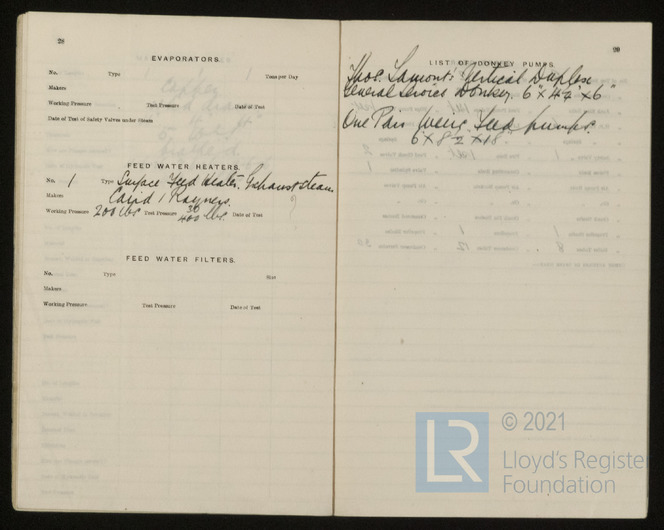 28
EVAPORATORS.
No. Type Tons per Day
Makers
Working Pressure Test Pressure Date of Test
Date of Test of Safety Valves under Steam
FEED WATER HEATERS.
No. 1 Type Surface Feed Heater. Exhaust steam
Makers Caird & Rayners.
Working Pressure 200 lbs Test Pressure 30 400 lbs. Date of Test
FEED WATER FILTERS.
No. Type Size
Makers
Working Pressure Test Pressure Date of Test
29
LIST OF DONKEY PUMPS.
Thos. Lamont's Vertical Duplex
General Service Donkey. 6" x 4½" x 6"
One Pair Weirs Feed pumps.
6 x 8½ x 18
LR
© 2021
Lloyd's Register
Foundation